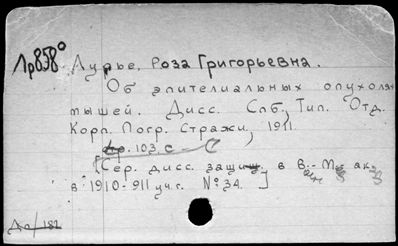 Лр858°
Лурье, Роза Григорьевна.
Об эпителиальных опухолях
мышей. Дисс. Спб, Тип. Отд.
Корп. Погр. Стражи, 1911.
103 с.
[Сер. дисс. защищ. в В.-М. ак.
в 1910-911 уч. г. № 34.]
Дп/182